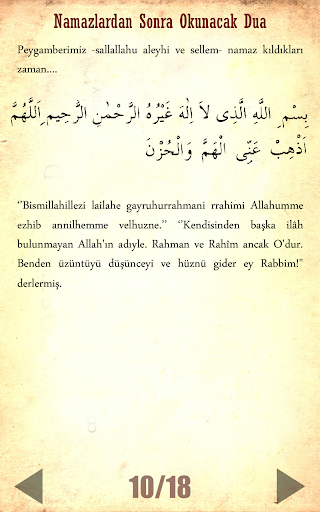 Namazlardan Sonra Okunacak Dua
Peygamberimiz -sallallahu aleyhi ve sellem- namaz kıldıkları
zaman....
بِسْمِ اللَّهِ الَّذِى لاَ اِلٰهَ غَيْرُهُ الرَّحْمٰنِ الرَّحِيمِ اَللَّهُمَّ
اَذْهِبْ عَنِّى الْهَمَّ وَالْحُزْنَ
‘’Bismillahillezi lailahe gayruhurrahmani rrahimi Allahumme
ezhib annilhemme velhuzne.’’ ‘’Kendisinden başka ilâh
bulunmayan Allah'ın adıyle. Rahman ve Rahîm ancak O'dur.
Benden üzüntüyü düşünceyi ve hüznü gider ey Rabbim!"
derlermiş.
10/18